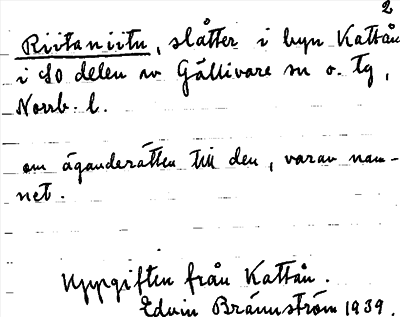 2
Riitaniitu, slåtter i byn Kattån
i SO delen av Gällivare sn o. tg,
Norrb. l.
om äganderätten till den, varav nam-
net.
Uppgiften från Kattån.
Edvin Brännström 1939.